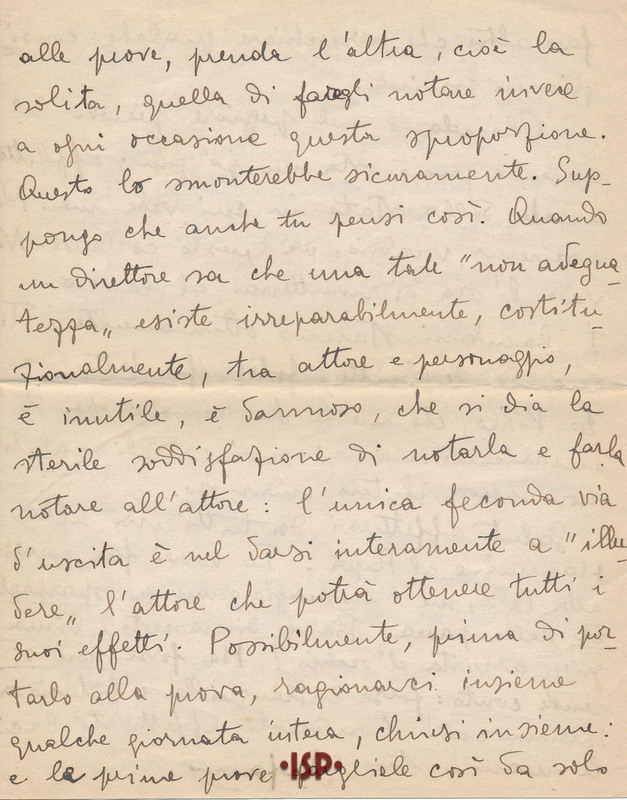 alle prove, prenda l'altra, cioè la
solita, quella di fargli notare invece
a ogni occasione questa sproporzione.
Questo lo smonterebbe sicuramente. Sup-
pongo che anche tu pensi così. Quando
un direttore sa che una tale "non adegua-
tezza„ esiste irreparabilmente, costitu-
zionalmente, tra attore e personaggio,
è inutile, è dannoso, che si dia la
sterile soddisfazione di notarla e farla
notare all'attore: l'unica feconda via
d'uscita è nel darsi interamente a "illu-
dere„ l'attore che potrà ottenere tutti i
suoi effetti. Possibilmente, prima di por-
tarlo alla prova, ragionarci insieme
qualche giornata intera, chiusi insieme:
e le prime prove fargliele così da solo
•ISP•